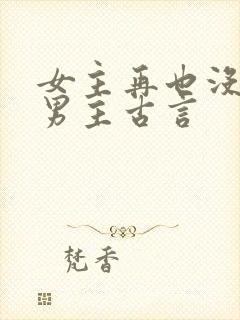 女主再也没
男主古言
梵香